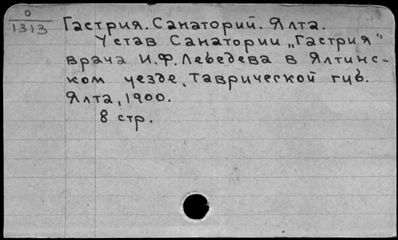 О
1313
Гастрия. Санаторий. Ялта.
Устав Санатории „Гастрия"
врача И.Ф. Лебедева в Ялтинс-
ком уезде, Таврической губ.
Ялта, 1900.
8 стр.